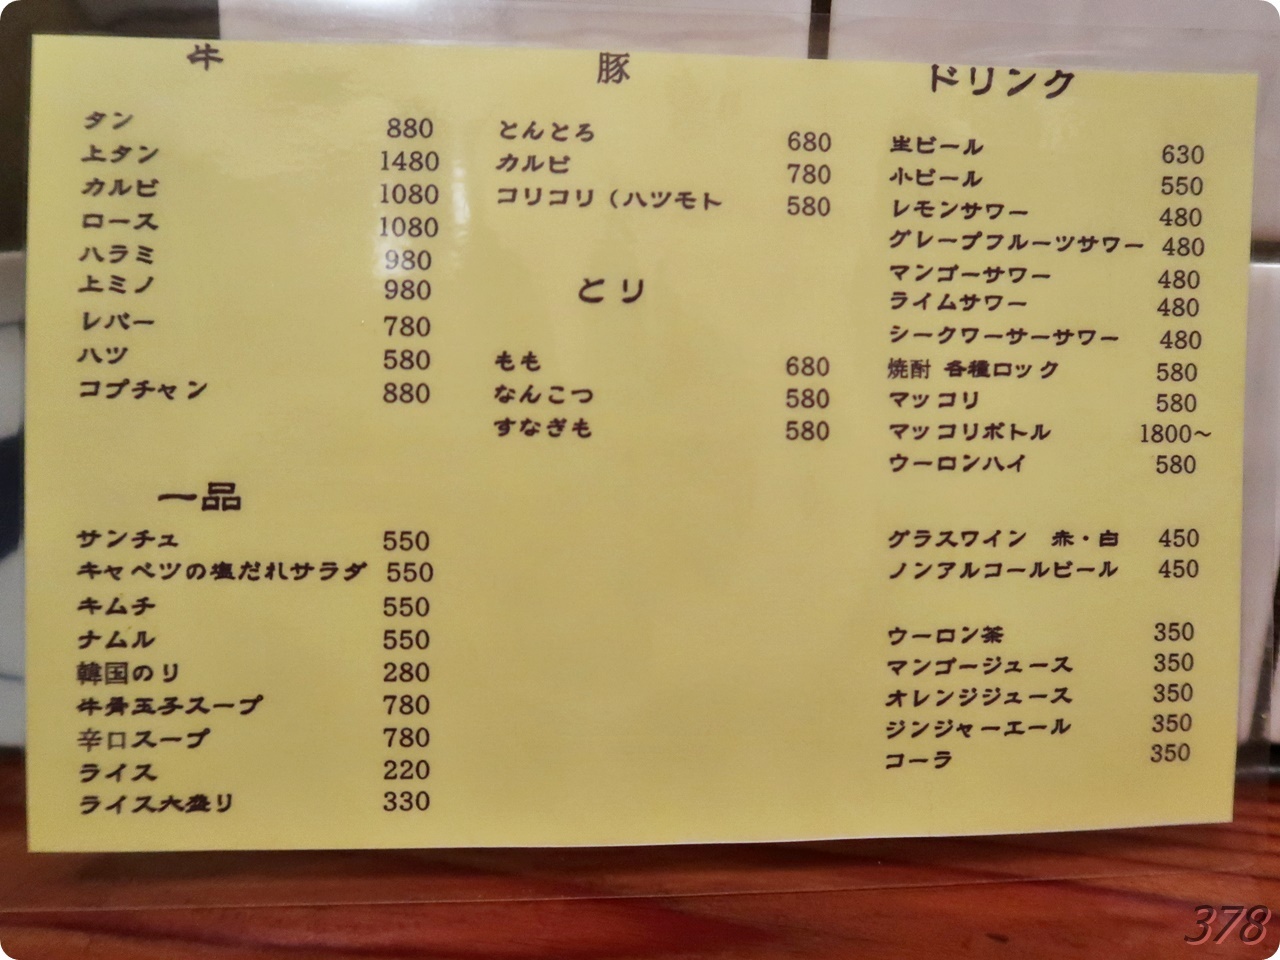 牛
タン 880
上タン 1480
カルビ 1080
ロース 1080
ハラミ 980
上ミノ 980
レバー 780
ハツ 580
コプチャン 880
一品
サンチュ 550
キャベツの塩だれサラダ 550
キムチ 550
ナムル 550
韓国のり 280
牛骨玉子スープ 780
辛口スープ 780
ライス 220
ライス大盛り 330
豚
とんとろ 680
カルビ 780
コリコリ（ハツモト 580
とり
もも 680
なんこつ 580
すなぎも 580
ドリンク
生ビール 630
小ビール 550
レモンサワー 480
グレープフルーツサワー 480
マンゴーサワー 480
ライムサワー 480
シークワーサーサワー 480
焼酎 各種ロック 580
マッコリ 580
マッコリボトル 1800～
ウーロンハイ 580
グラスワイン 赤・白 450
ノンアルコールビール 450
ウーロン茶 350
マンゴージュース 350
オレンジジュース 350
ジンジャーエール 350
コーラ 350
378